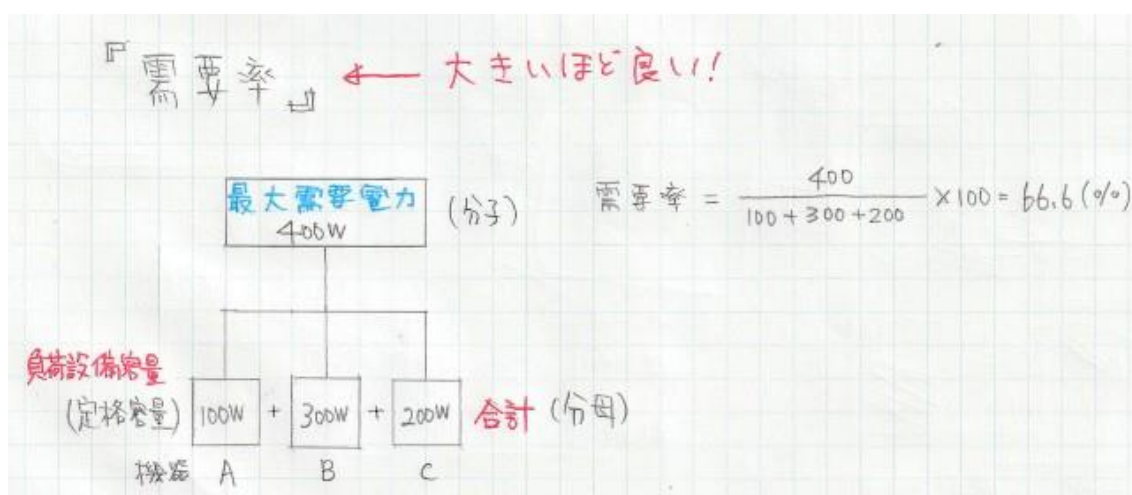 『需要率』 ← 大きいほど良い!
最大需要電力 (分子)
400W
需要率 = 400 / 100+300+200 ×100 = 66.6(%)
負荷設備容量
(定格容量) 100W + 300W + 200W 合計 (分母)
機器 A B C